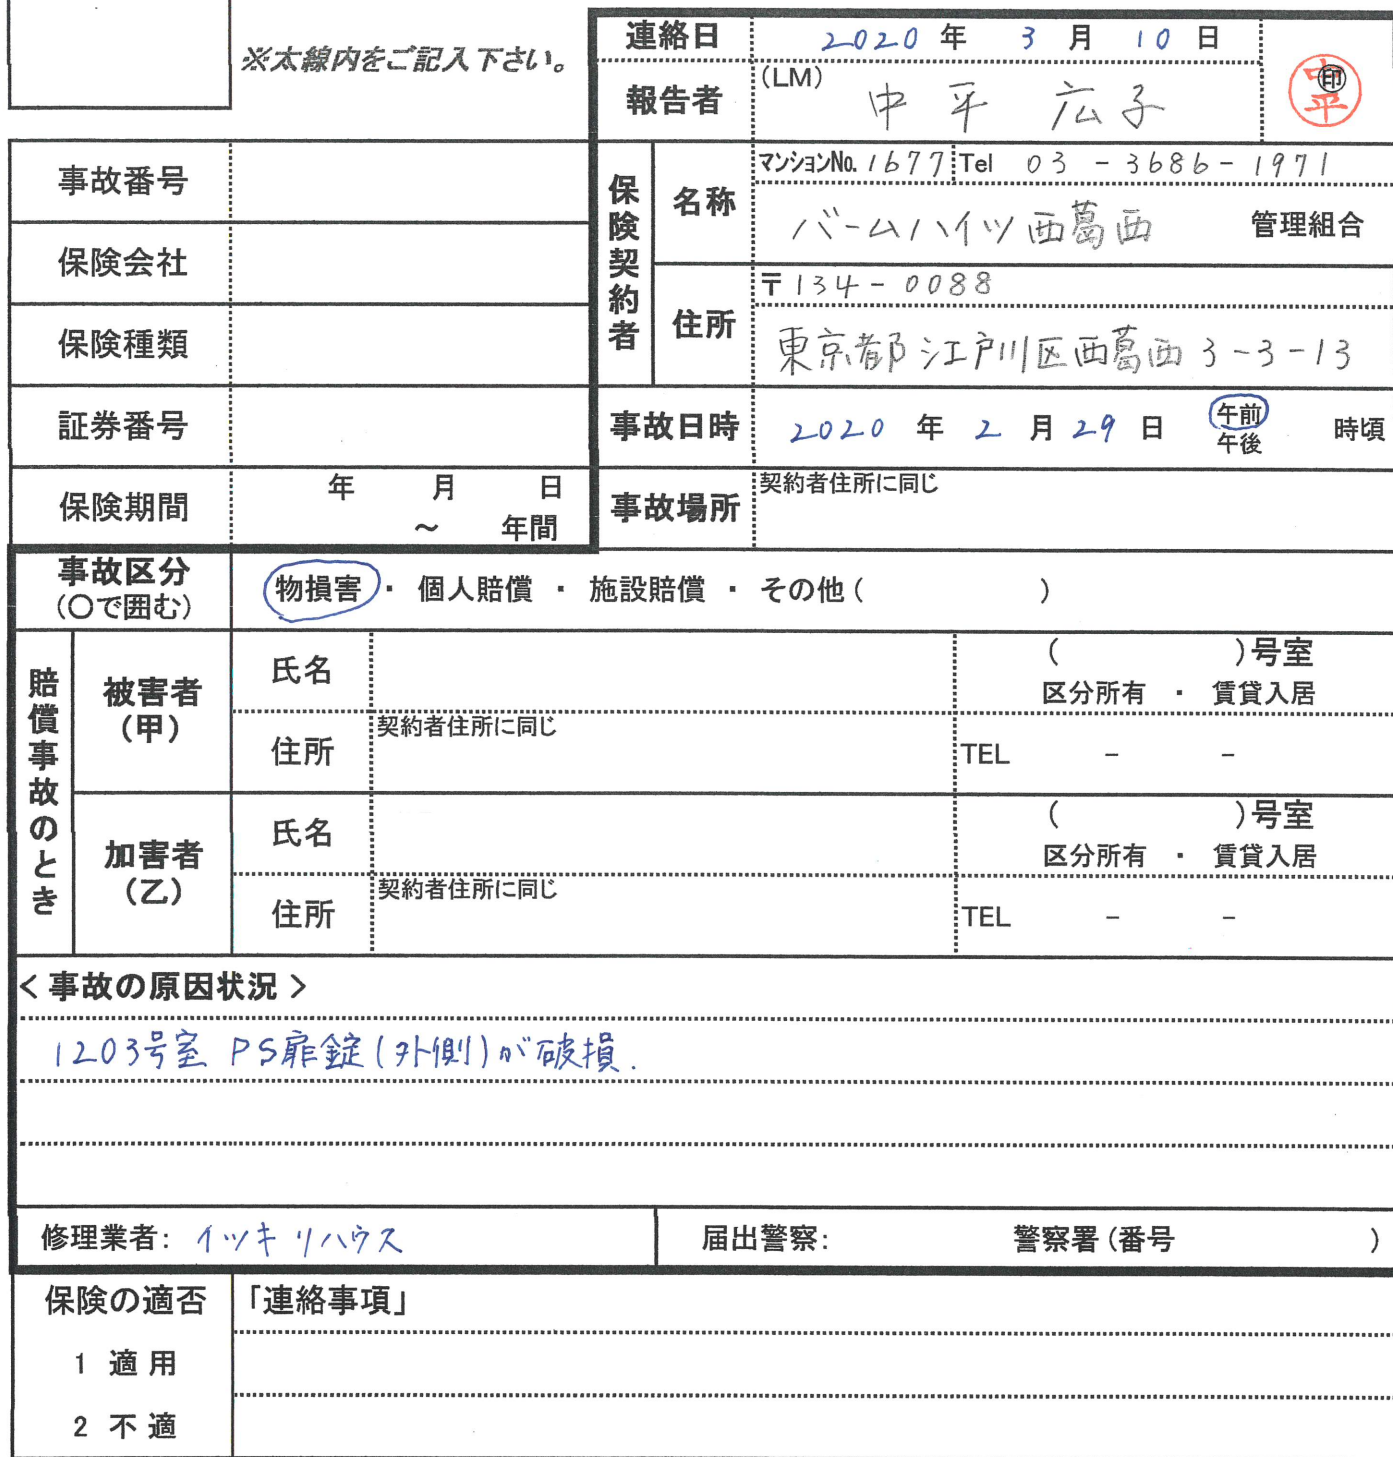 ※太線内をご記入下さい。
連絡日 2020 年 3 月 10 日
報告者 (LM) 中平 広子 ㊞ 中平
事故番号
保険会社
保険種類
証券番号
保険期間 年 月 日
～ 年間
保険契約者
名称 マンションNo. 1677 Tel 03 - 3686 - 1971
バームハイツ西葛西 管理組合
住所 〒134-0088
東京都江戸川区西葛西3-3-13
事故日時 2020 年 2 月 29 日 午前 午後 時頃
事故場所 契約者住所に同じ
事故区分 (〇で囲む) 物損害 ・ 個人賠償 ・ 施設賠償 ・ その他 ( )
賠償事故のとき
被害者 (甲)
氏名 ( )号室
区分所有 ・ 賃貸入居
住所 契約者住所に同じ TEL - -
加害者 (乙)
氏名 ( )号室
区分所有 ・ 賃貸入居
住所 契約者住所に同じ TEL - -
<事故の原因状況>
1203号室 PS扉錠(外側)が破損.
修理業者: イツキリハウス 届出警察: 警察署 (番号 )
保険の適否 「連絡事項」
1 適用
2 不適